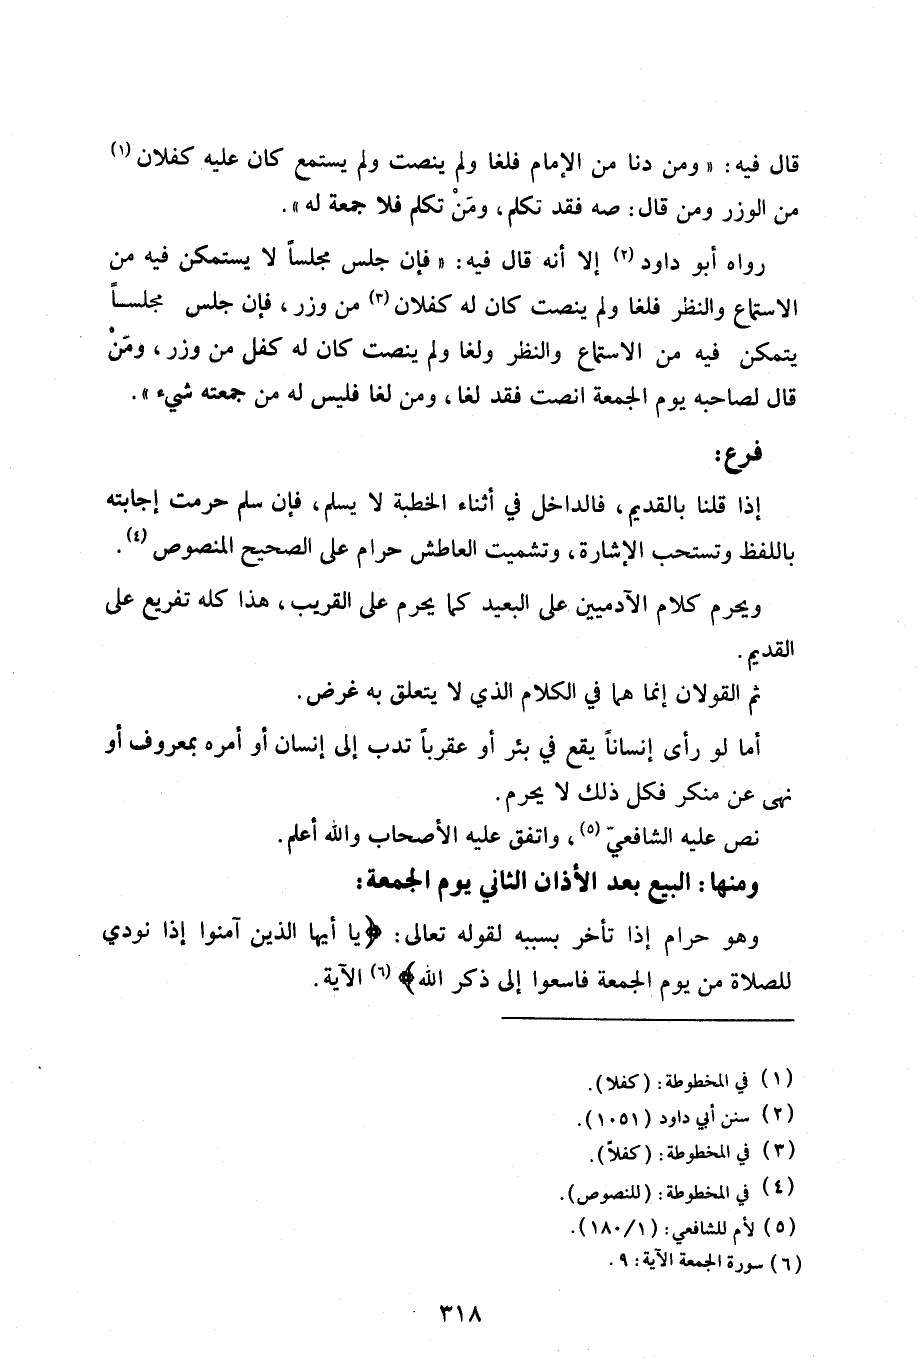 قال فيه: « ومن دنا من الإمام فلغا ولم ينصت ولم يستمع كان عليه كفلان (١)
من الوزر ومن قال: صه فقد تكلم، ومَنْ تكلم فلا جمعة له ».
رواه أبو داود (٢) إلا أنه قال فيه: « فإن جلس مجلساً لا يستمكن فيه من
الاستماع والنظر فلغا ولم ينصت كان له كفلان (٣) من وزر، فإن جلس مجلســاً
يتمكن فيه من الاستماع والنظر ولغا ولم ينصت كان له كفل من وزر، ومَنْ
قال لصاحبه يوم الجمعة انصت فقد لغا، ومن لغا فليس له من جمعته شيء ».
فرع:
إذا قلنا بالقديم، فالداخل في أثناء الخطبة لا يسلم، فإن سلم حرمت إجابته
باللفظ وتستحب الإشارة، وتشميت العاطش حرام على الصحيح المنصوص (٤).
ويحرم كلام الآدميين على البعيد كما يحرم على القريب، هذا كله تفريع على
القديم.
ثم القولان إنما هما في الكلام الذي لا يتعلق به غرض.
أما لو رأى إنساناً يقع في بئر أو عقرباً تدب إلى إنسان أو أمره بمعروف أو
نهى عن منكر فكل ذلك لا يحرم.
نص عليه الشافعيّ (٥)، واتفق عليه الأصحاب والله أعلم.
ومنها: البيع بعد الأذان الثاني يوم الجمعة:
وهو حرام إذا تأخر بسببه لقوله تعالى: ﴿يا أيها الذين آمنوا إذا نودي
للصلاة من يوم الجمعة فاسعوا إلى ذكر الله﴾ (٦) الآية.
(١) في المخطوطة: (كفلا).
(٢) سنن أبي داود (١٠٥١).
(٣) في المخطوطة: (كفلاً).
(٤) في المخطوطة: (للنصوص).
(٥) لأم للشافعي: (١/١٨٠).
(٦) سورة الجمعة الآية: ٩.
٣١٨